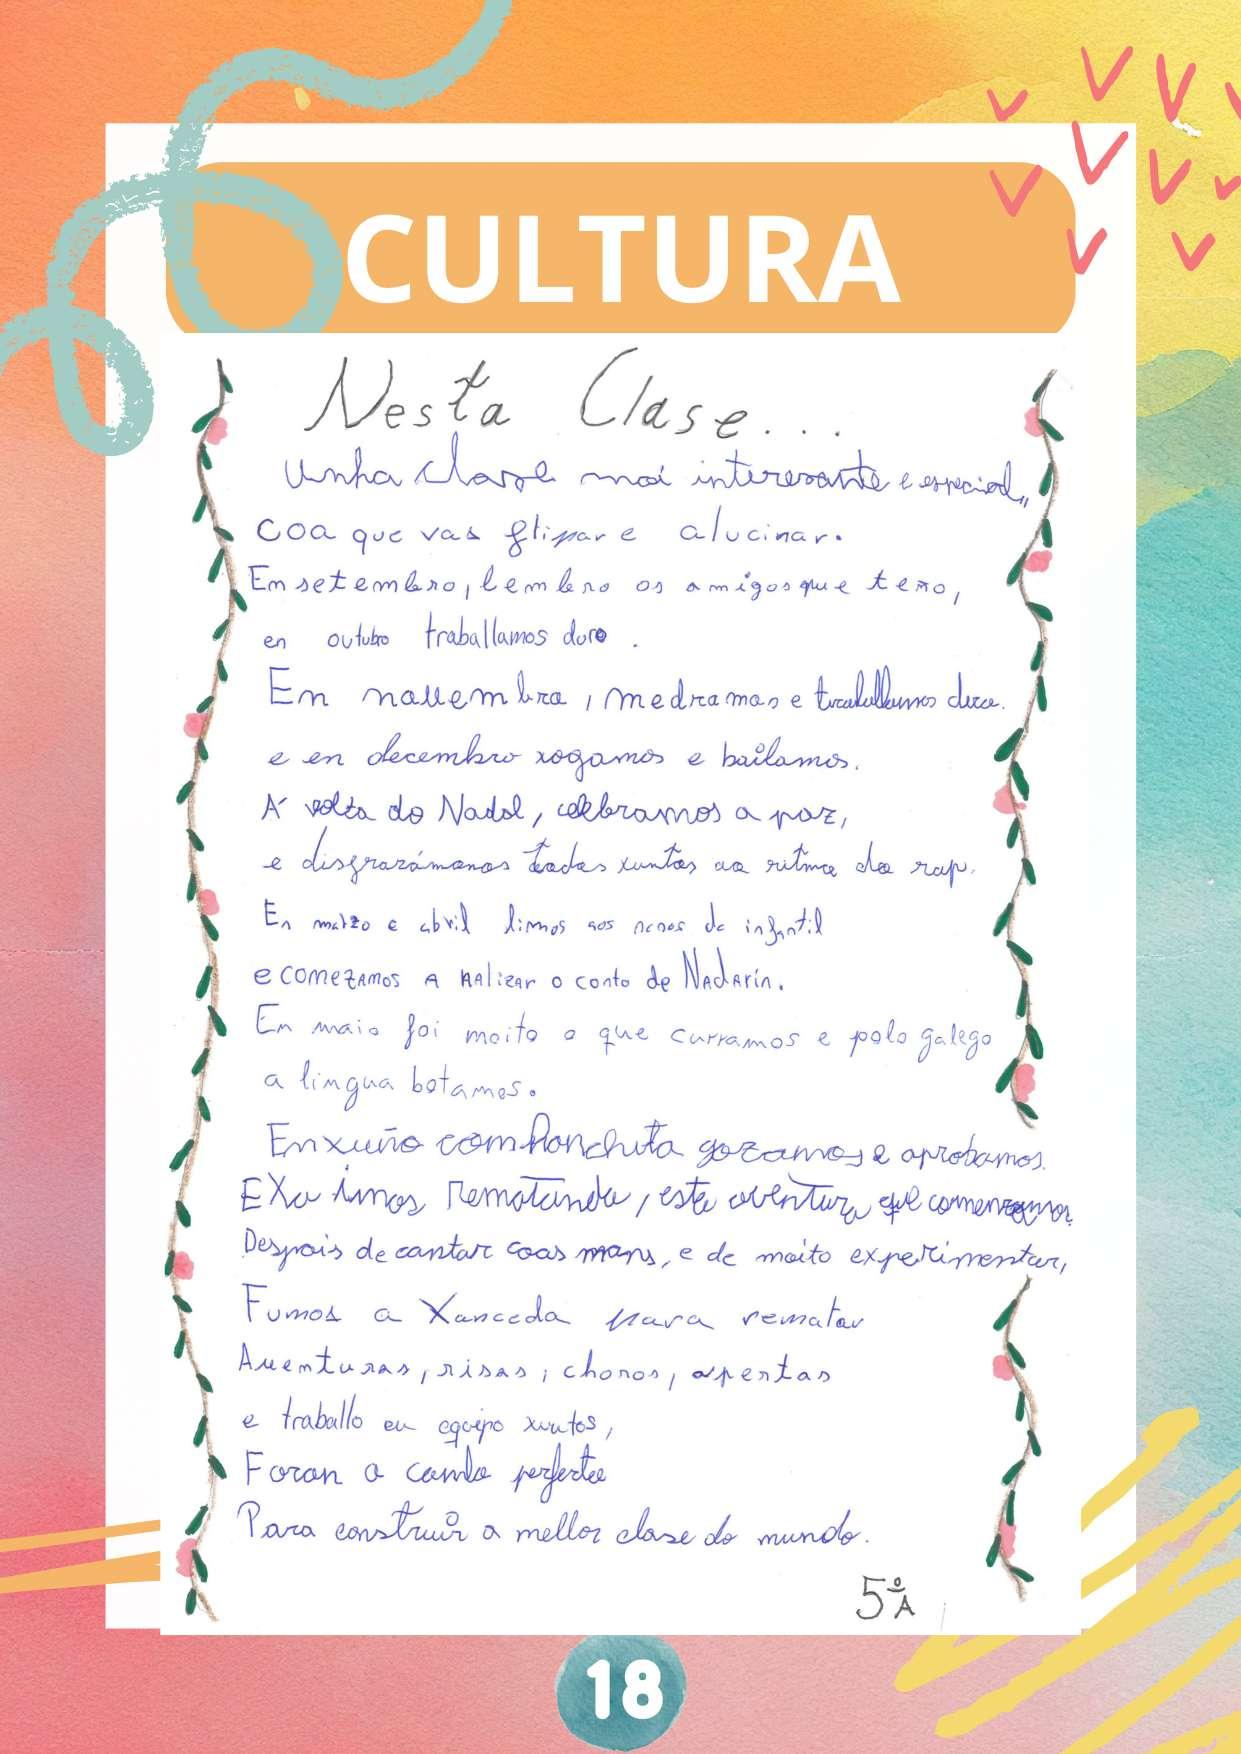 CULTURA
Nesta Clase...
Unha clase moi interesante e especial,,
coa que vas flipar e alucinar.
En setembro, lembro os amigos que teño,
en outubro traballamos duro.
En novembro, medramos e traballamos duro.
e en decembro xogamos e bailamos.
Á volta do Nadal, celebramos a paz,
e disfrazámonos todos xuntos ao ritmo do rap.
En marzo e abril limos aos nenos de infantil
e comezamos a realizar o conto de Nadarín.
En maio foi moito o que curramos e polo galego
a lingua botamos.
En xuño con Conchita gozamos e aprobamos.
E xa imos rematando, esta aventura que comenzamos.
Despois de cantar coas mans, e de moito experimentar,
Fumos a Xanceda para rematar
Aventuras, risas, choros, apertas
e traballo en equipo xuntos,
Foron o combo perfecto
Para construir a mellor clase do mundo.
5ºA
18